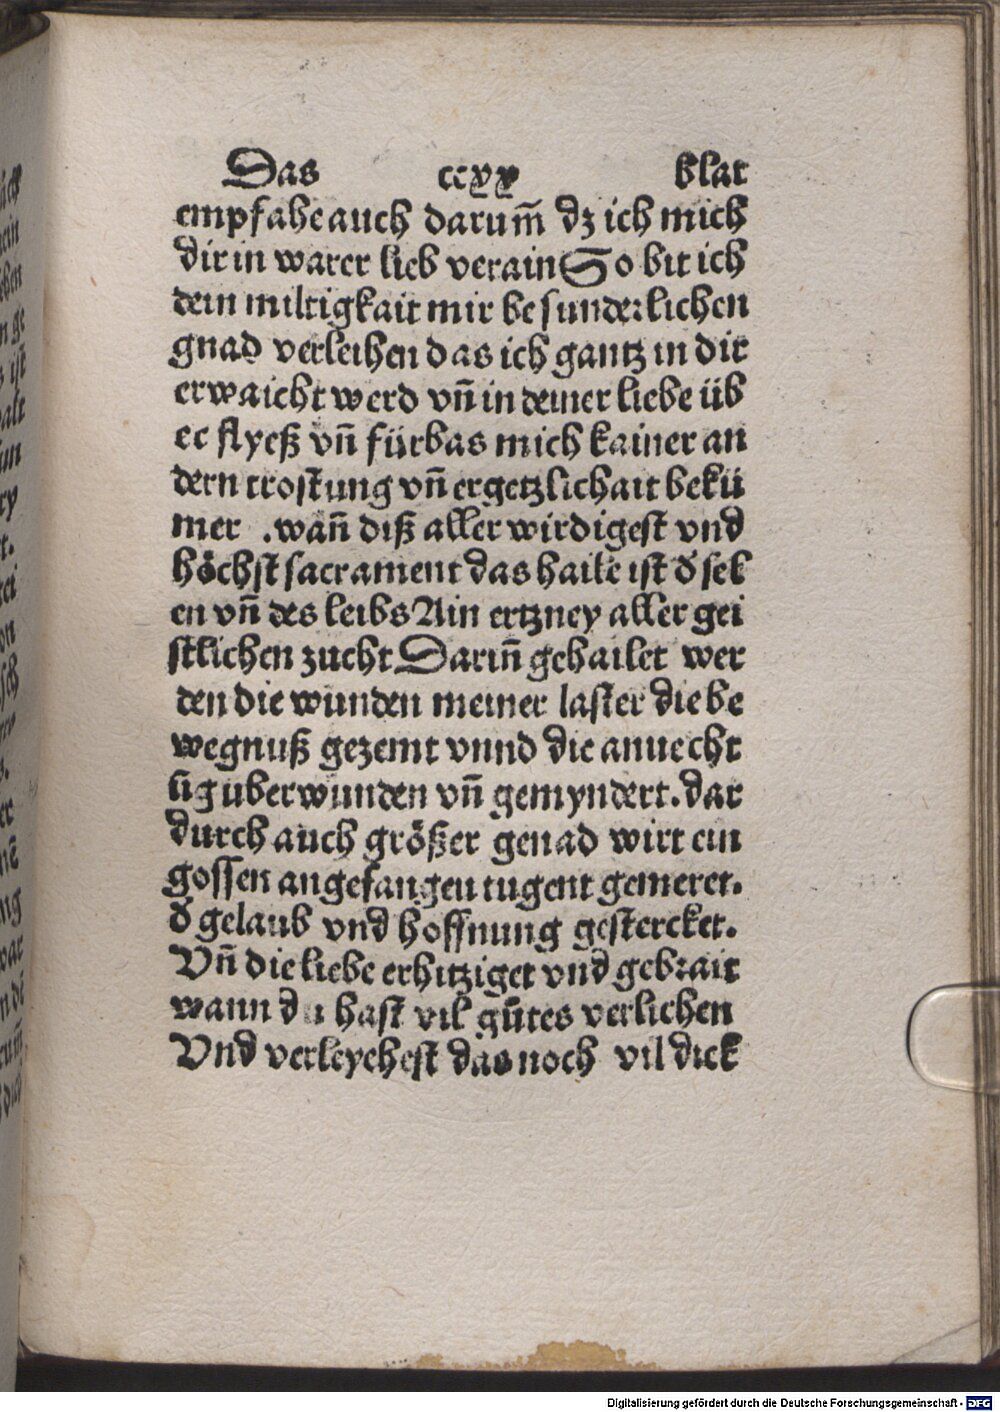 Das ccxx blat
empfahe auch darum̄ dz ich mich
dir in warer lieb verain So bit ich
dein miltigkait mir besunderlichen
gnad verleihen das ich gantz in dir
erwaicht werd vn̄ in deiner liebe üb
er flyeß vn̄ fürbas mich kainer an
dern trostung vn̄ ergetzlichait bekü
mer .wan̄ diß aller wirdigest vnd
höchst sacrament das haile ist d̄ sel
en vn̄ des leibs Ain ertzney aller gei
stlichen zucht Darin̄ gehailet wer
den die wunden meiner laster die be
wegnuß gezemt vnnd die anuecht
lig uberwunden vn̄ gemyndert. dar
durch auch größer genad wirt ein
gossen angefangen tugent gemeret.
d̄ gelaub vnd hoffnung gestercket.
Vn̄ die liebe erhitziget vnd gebrait
wann du hast vil gůtes verlichen
Vnd verleyehest das noch vil dick
Digitalisierung gefördert durch die Deutsche Forschungsgemeinschaft - DFG